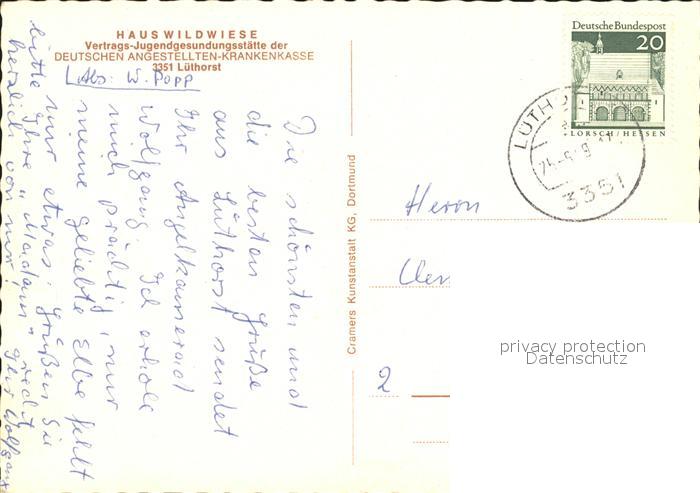 HAUS WILDWIESE
Vertrags-Jugendgesundungsstätte der
DEUTSCHEN ANGESTELLTEN-KRANKENKASSE
3351 Lüthorst
Abs: W. Popp
Die schönsten und
die besten Grüße
aus Lüthorst sendet
Ihr Angelkamerad
Wolfgang. Ich erhole
mich prächtig, nur
meine geliebte Elbe fehlt
mir etwas. Grüßen Sie
bitte Ihre "Madam" recht
herzlich von mir! Ihr Wolfgang
Cramers Kunstanstalt KG, Dortmund
Deutsche Bundespost
20
LORSCH/HESSEN
LÜTHO
3351
Herrn
2
privacy protection
Datenschutz